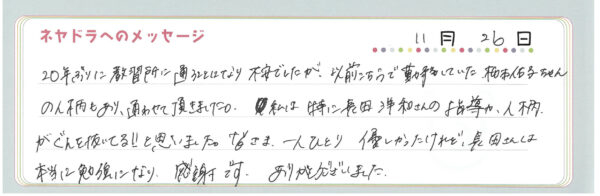 ネヤドラへのメッセージ
11月 26日
20年ぶりに教習所に通うことになり不安でしたが、以前こちらで勤務していた 佐子ちゃん
の人柄もあり、通わせて頂きました。私は特に長田 さんの指導が、人柄
がぐんを抜いてる!!と思いました。皆さま、一人ひとり 優しかったけれど、長田さんは
本当に勉強になり、感謝です。ありがとうございました。